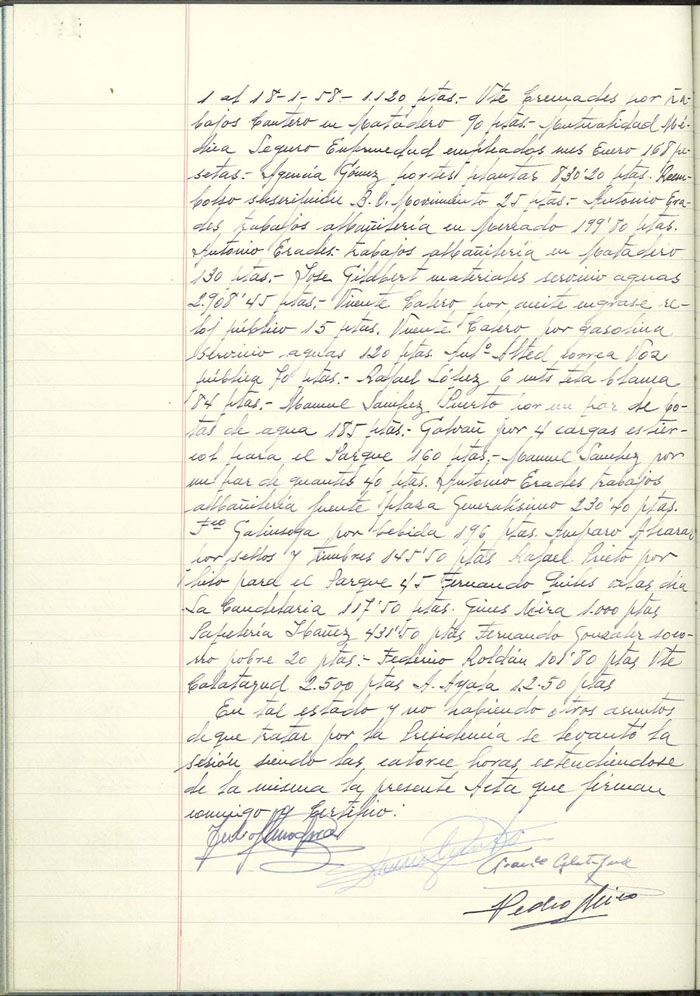 1 al 18-1-58.- 1.120 ptas.- Vte Cremades por tra-
bajos Cantero en Matadero 90 ptas.- Mutualidad Mé-
dica Seguro Enfermedad empleados mes Enero 168 pe-
setas.- Agencia Gómez portes plantas 830'20 ptas. Reem-
bolso suscripción B.O. Movimiento 25 ptas.- Antonio Era-
des, trabajos albañilería en Mercado 199'80 ptas.
Antonio Erades.- trabajos albañilería en Matadero
130 ptas.- Jose Gildbert materiales servicio aguas
2.908'45 ptas.- Vicente Calero por aceite engrase re-
loj público 15 ptas. Vicente Calero por gasolina
servicio aguas 120 ptas. Ant.º Alted correa Voz
pública 70 ptas.- Rafael López 6 mts tela blanca
84 ptas.- Manuel Sanchez Puerto por un par de bo-
tas de agua 185 ptas.- Galvañ por 4 cargas estiér-
col para el Parque 160 ptas.- Manuel Sanchez por
un par de guantes 40 ptas. Antonio Erades trabajos
albañilería fuente plaza Generalísimo 230'40 ptas.
Fco Galinsoga por bebida 196 ptas. Amparo Alcaraz
por sellos y timbres 145'50 ptas Rafael Prieto por
hilo para el Parque 45 Fernando Quiles velas dia
La Candelaria 117'50 ptas. Gines Mira 1.000 ptas
Papelería Ibañez 431'50 ptas Fernando Gonzalez soco-
rro pobre 20 ptas.- Federico Roldán 101'80 ptas Vte
Calatayud 2.500 ptas A. Ayala 12.50 ptas
En tal estado y no habiendo otros asuntos
de que tratar por la Presidencia se levantó la
sesión siendo las catorce horas extendiendose
de la misma la presente Acta que firman
conmigo y Certifico:
Calatayud
Pedro